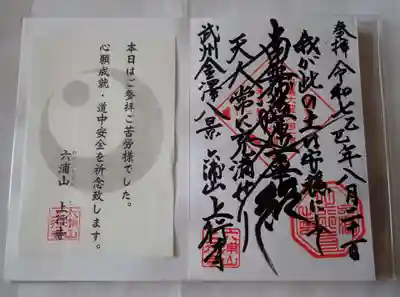 参拝 令和七乙巳年八月
我が此の土は安穏にして
南無妙法蓮華経
天人常に充満せり
武州金澤八景 六浦山 上行寺
本日はご参拝ご苦労様でした。
心願成就・道中安全を祈念致します。
六浦山 上行寺